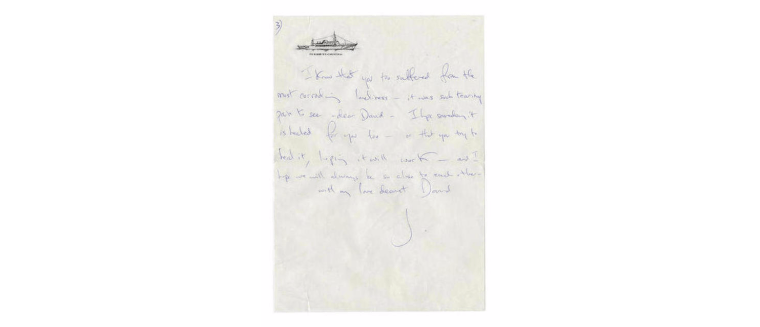 3
I know that you too suffered from the
most loneliness – it was such
pain to see – dear David – I hope someday it
is healed for you too – or that you try to
heal it, hoping it will work – and I
hope we will always be as close to each other
with my love dearest David
J.